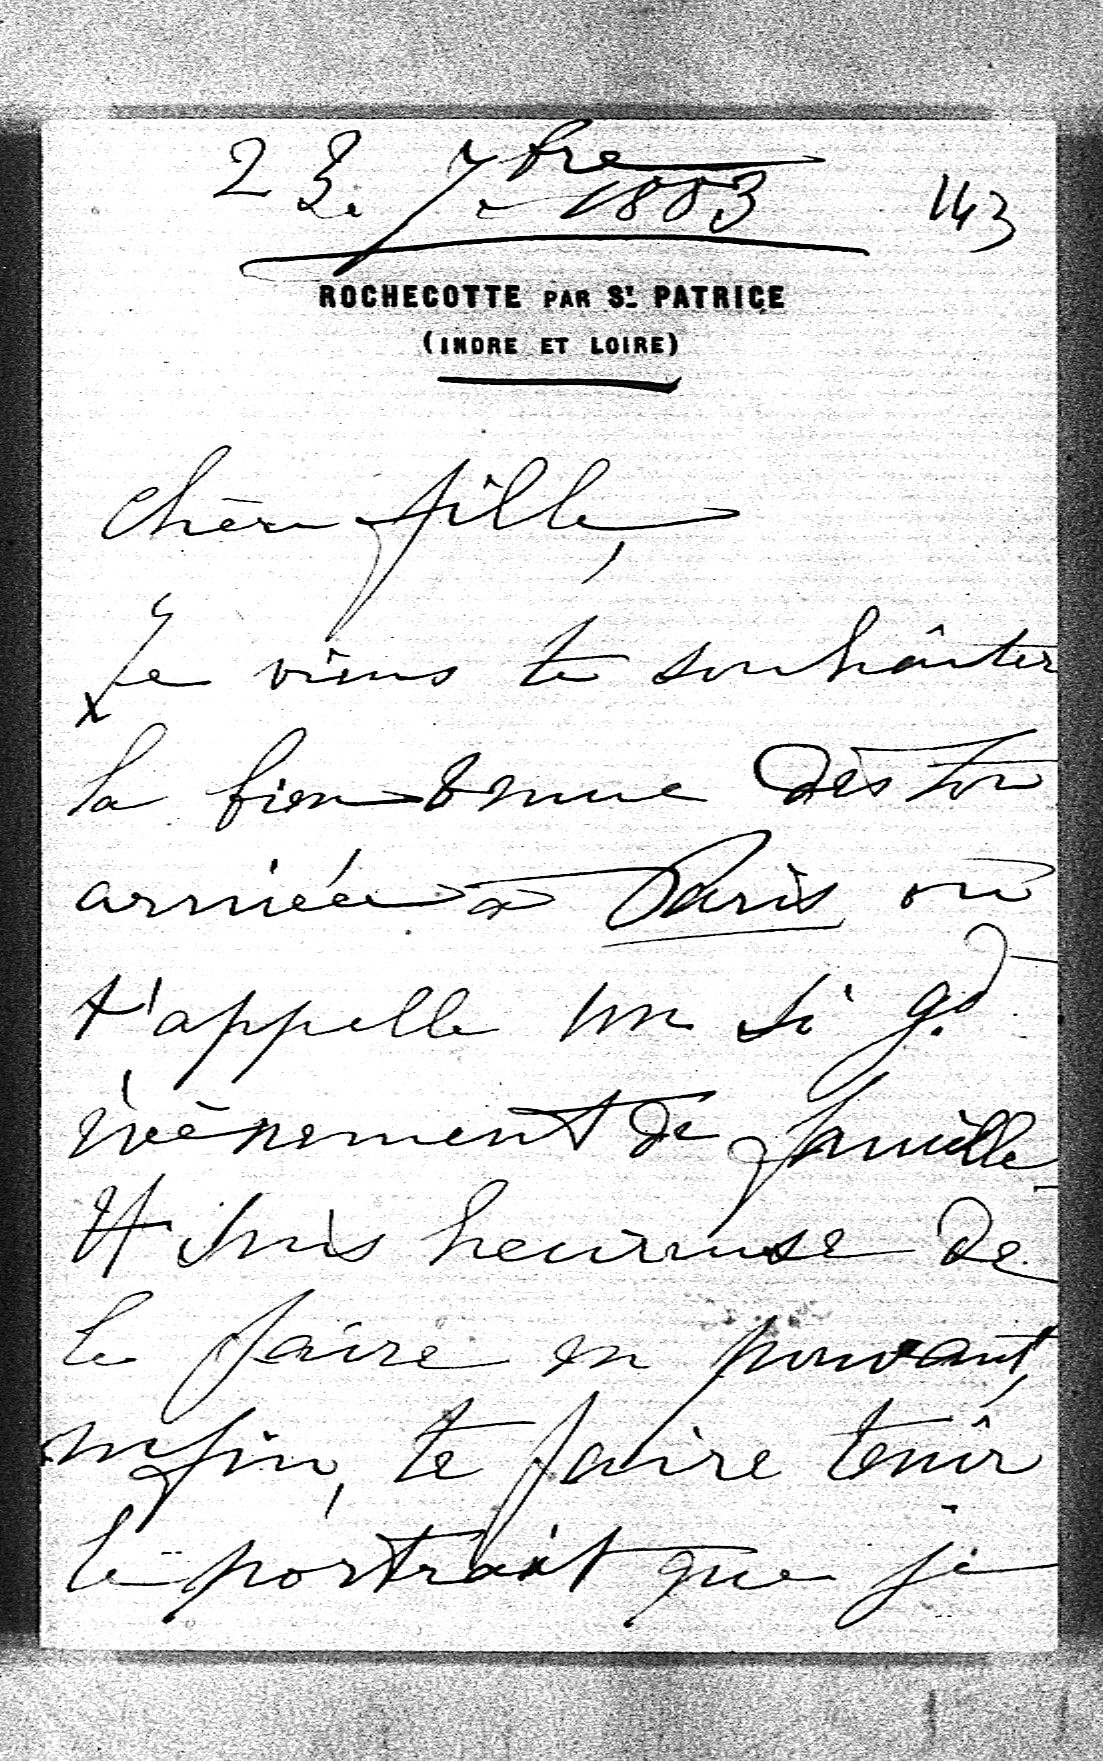 23. 7bre 1883
143
ROCHECOTTE PAR St. PATRICE
(INDRE ET LOIRE)
Chère fille,
Je viens te souhâiter
la bienvenue dès ton
arrivée à Paris où
t'appelle un si gd
évènement de famille
Et suis heureuse de
le faire en pouvant,
enfin, te faire tenir
le portrait que je